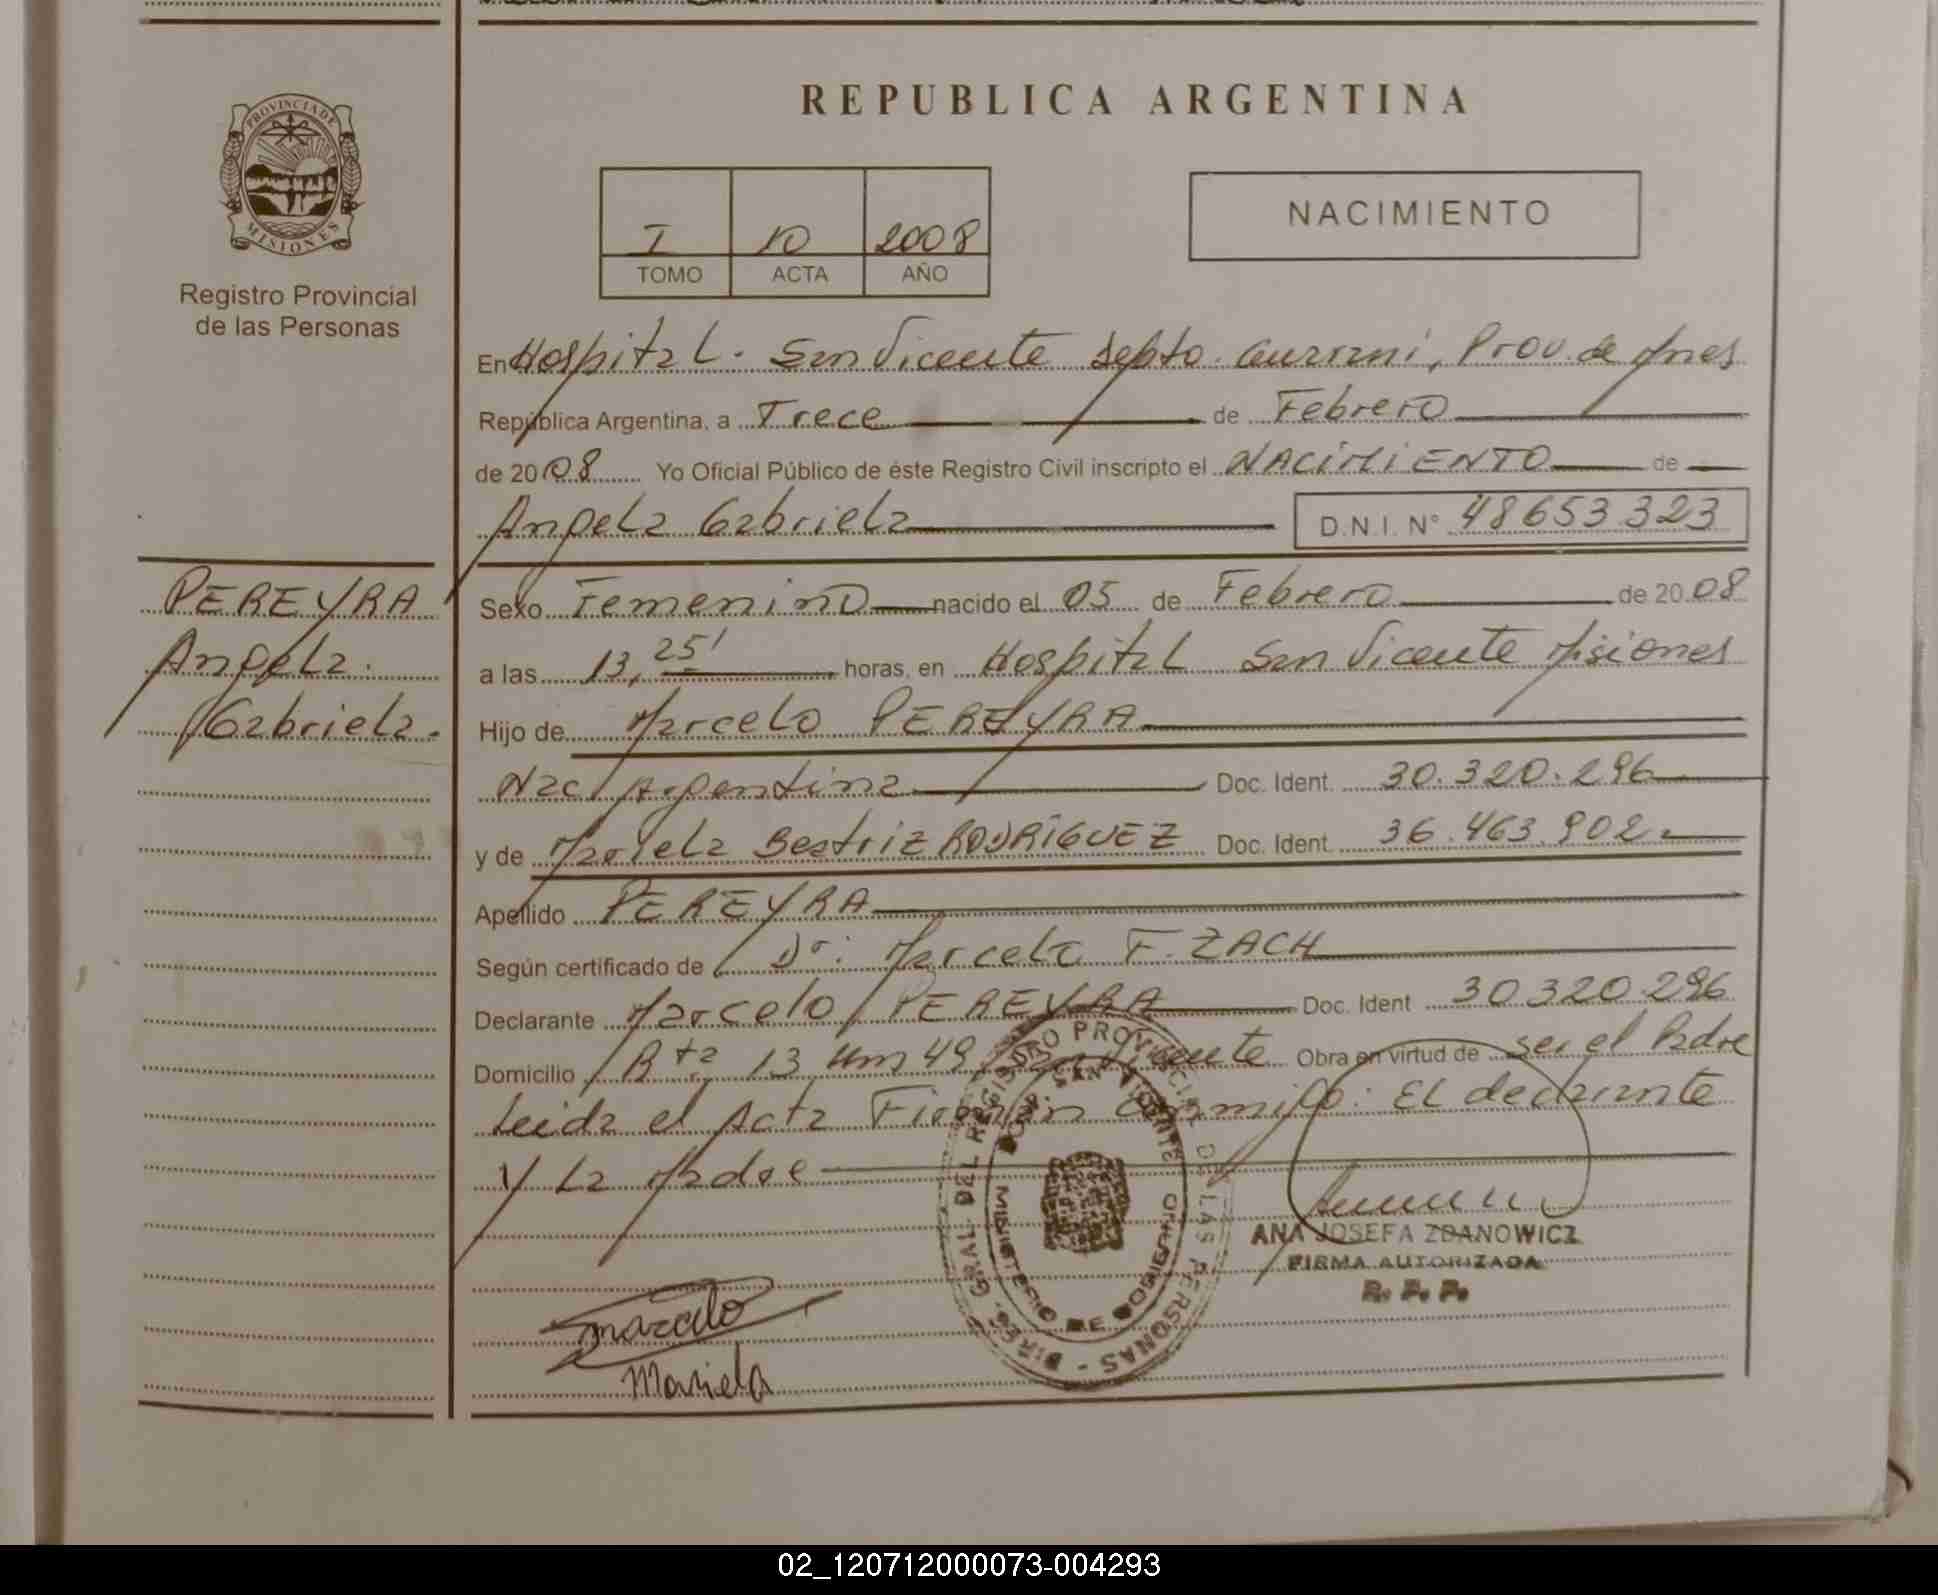 REPUBLICA ARGENTINA
PROVINCIA DE MISIONES
Registro Provincial
de las Personas
I 10 2008
TOMO ACTA AÑO
NACIMIENTO
En Hospital. San Vicente Depto. Guarani, Prov. de Mnes
República Argentina, a Trece de Febrero
de 2008 Yo Oficial Público de éste Registro Civil inscripto el NACIMIENTO de
Angela Gabriela D.N.I. N° 48653323
PEREYRA
Angela.
Gabriela.
Sexo Femenino nacido el 05 de Febrero de 2008
a las 13, 25' horas, en Hospital San Vicente Misiones
Hijo de Marcelo PEREYRA
Nac Argentina Doc. Ident. 30.320.296
y de Mariela Beatriz RODRÍGUEZ Doc. Ident. 36.463.902.
Apellido PEREYRA
Según certificado de Dr: Marcelo F. ZACH
Declarante Marcelo PEREYRA Doc. Ident 30320.296
Domicilio Rta 13 Km 49 San Vicente Obra en virtud de ser el Padre
Leida el Acta Firman conmigo: El declarante
Y La Madre
DIREC. GRAL. DEL REGISTRO PROVINCIAL DE LAS PERSONAS
SAN VICENTE
MINISTERIO DE GOBIERNO
ANA JOSEFA ZDANOWICZ
FIRMA AUTORIZADA
R. P. P.
Marcelo
Mariela
02_120712000073-004293